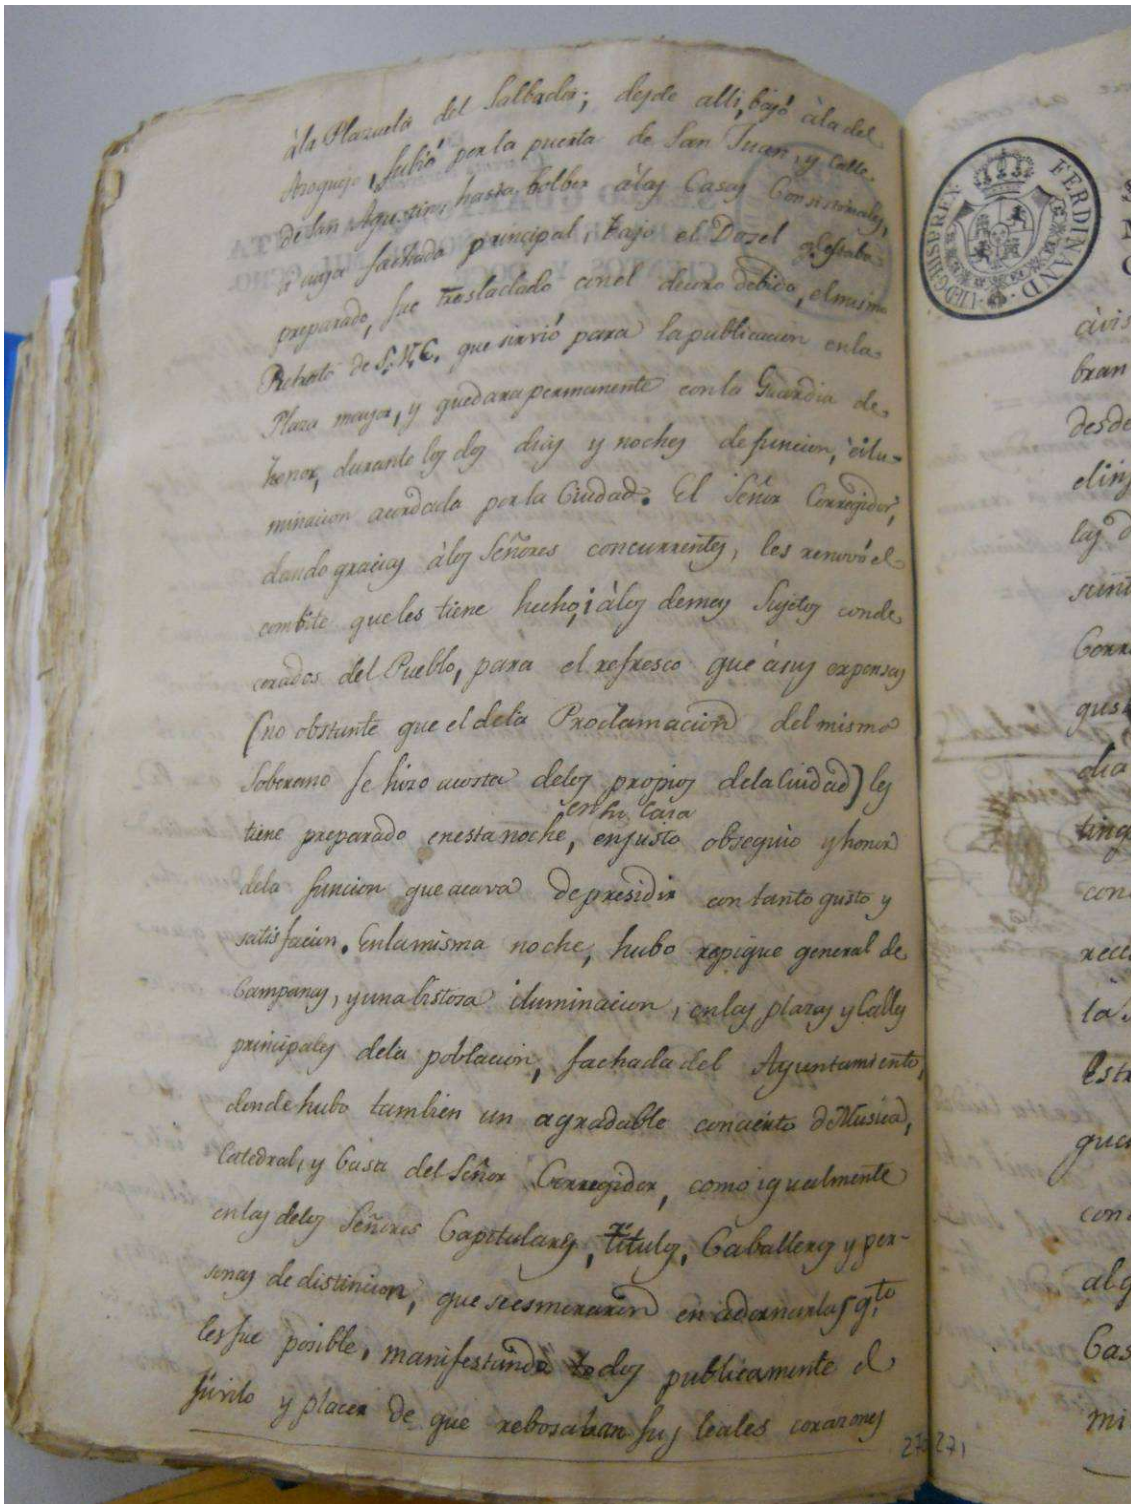 àla Plazuela del Salbador; desde alli, bajó àla del
Azoguejo, subió por la puerta de San Juan, y Calle
de San Agustin, hasta bolber àlas Casas Consistoriales,
à cuya fachada principal, bajo el Dosel q.e estaba
preparado, fue trasladado con el decoro debido, el mismo
Retrato de S.M.C. que sirvió para la publicacion en la
Plaza mayor, y quedara permanente con la Guardia de
honor, durante los dos dias y noches de funcion, è ilu-
minacion acordada por la Ciudad. El Señor Corregidor,
dando gracias àlos Señores concurrentes, les renovó el
combite que les tiene hecho, i àlos demas Sujetos conde
corados del Pueblo, para el refresco que à sus expensas
(no obstante que el dela Proclamacion del mismo
Soberano se hizo acosta delos propios dela Ciudad) les
en su Casa
tiene preparado enesta noche, enjusto obsequio y honor
dela funcion que acava de presidir con tanto gusto y
satisfacion. Enla misma noche, hubo repique general de
Campanas, y una bistosa iluminacion, enlas plazas y Calles
principales dela poblacion, fachada del Ayuntamiento,
donde hubo tambien un agradable concierto de Musica,
Catedral, y Casa del Señor Corregidor, como igualmente
enlas delos Señores Capitulares, titulos, Caballeros y per-
sonas de distincion, que se esmeraron en adornarlas q.to
les fue posible, manifestando todos publicamente el
júvilo y placer de que rebosaban sus leales corazones
270 271
FERDINAND
VII
REX
avis
bran
desde
el
las
Corre
dia
con
la
Estr
con
alg
Cas
mi